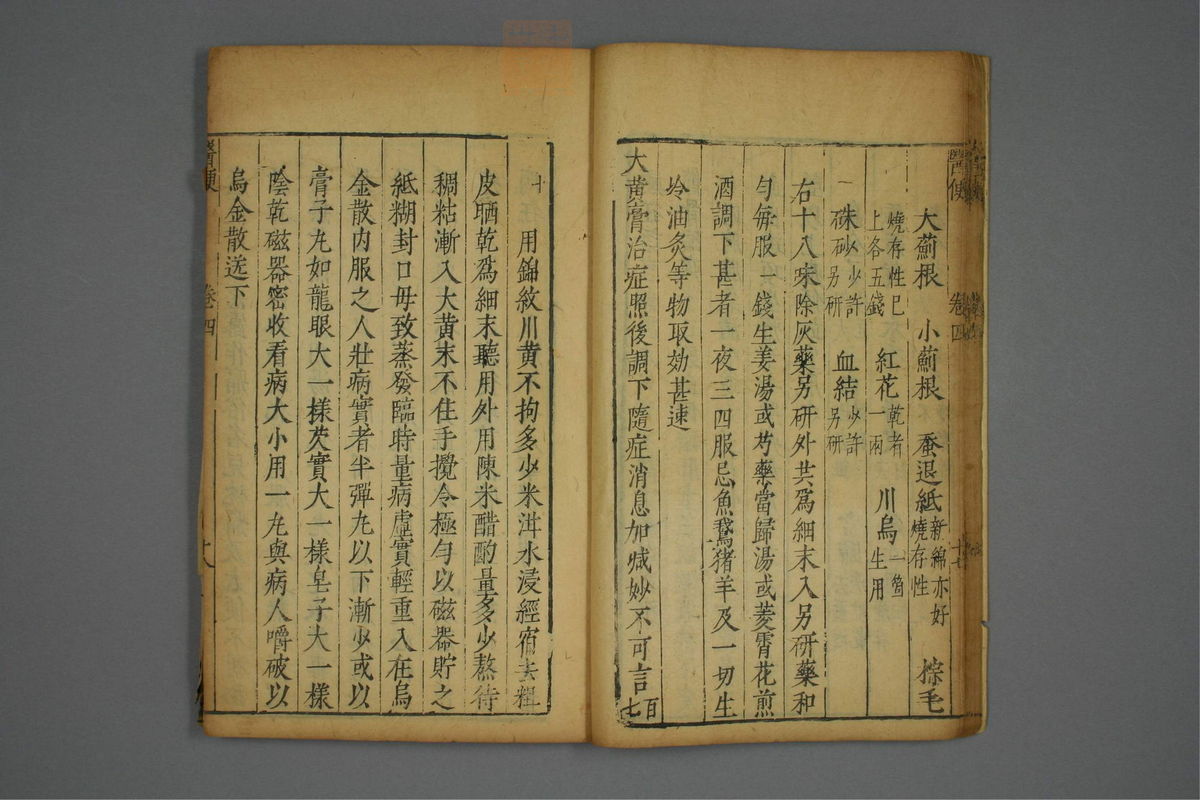 醫便 卷四 十七
大薊根 小薊根 蚕退紙新綿亦好燒存性 棕毛
燒存性已上各五錢 紅花一兩乾者 川烏一箇生用
硃砂少許另研 血結少許另研
右十八味除灰藥另研外共爲細末入另研藥和
勻每服一錢生姜湯或芍藥當歸湯或菱霄花煎
酒調下甚者一夜三四服忌魚鵞猪羊及一切生
冷油灸等物取効甚速
大黃膏治症照後調下隨症消息加减妙不可言
百七
十 用錦紋川黃不拘多少米泔水浸經宿去粗
皮晒乾爲細末聽用外用陳米醋酌量多少熬待
稠粘漸入大黃末不住手攪令極勻以磁器貯之
紙糊封口毋致蒸發臨時量病虛實輕重入在烏
金散内服之人壯病實者半彈丸以下漸少或以
膏子丸如龍眼大一樣芡實大一樣皂子大一樣
陰乾磁器密收看病大小用一丸與病人嚼破以
烏金散送下
醫便 卷四